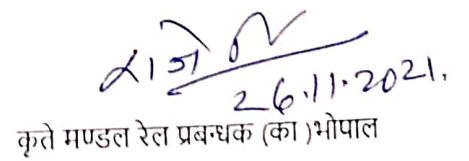 26.11.2021.
कृते मण्डल रेल प्रबन्धक (का)भोपाल